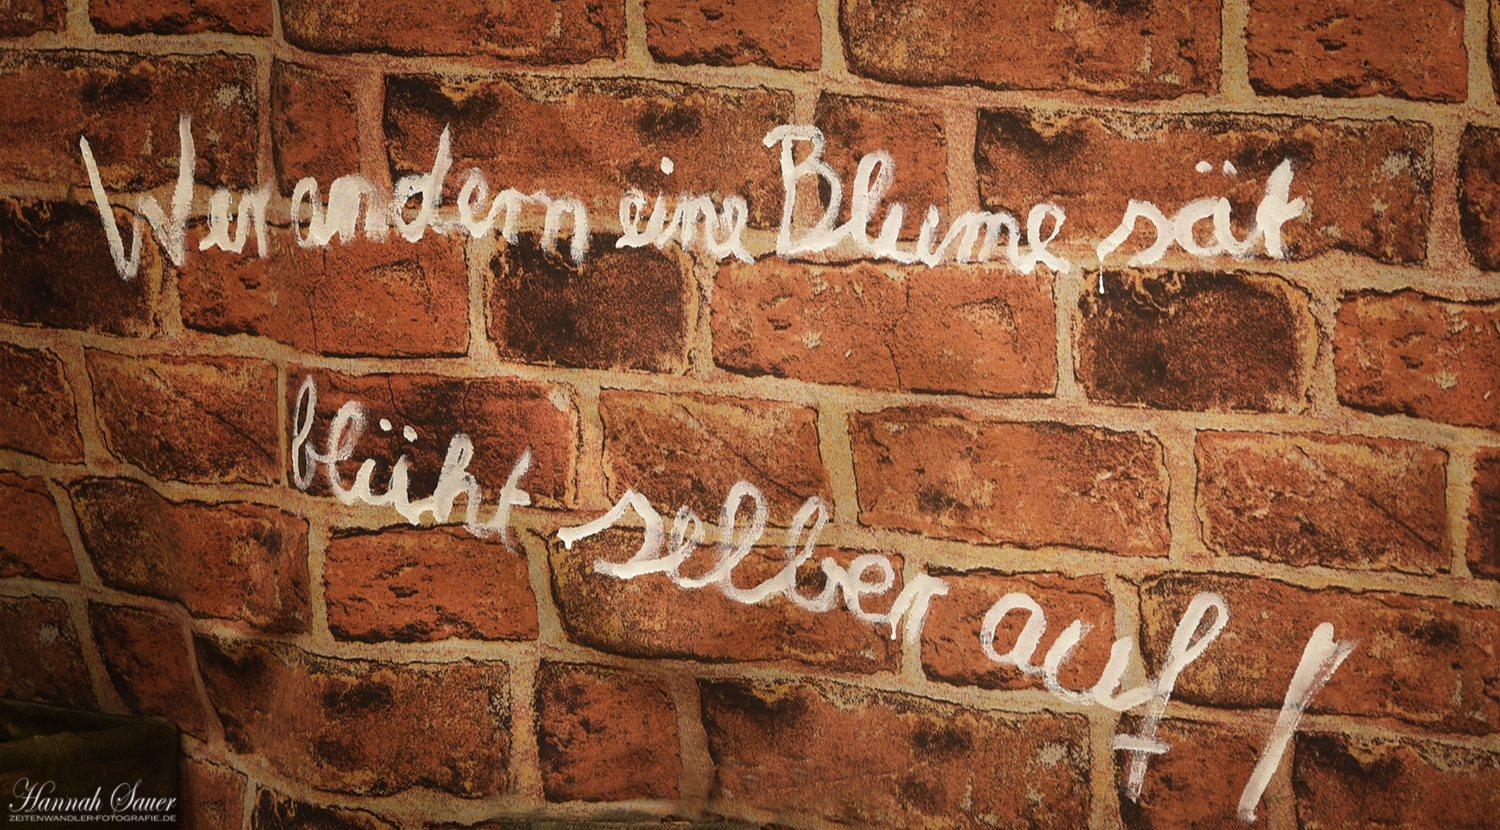 Wer andern eine Blume sät
blüht selber auf!
Hannah Sauer
ZEITENWANDLER-FOTOGRAFIE.DE